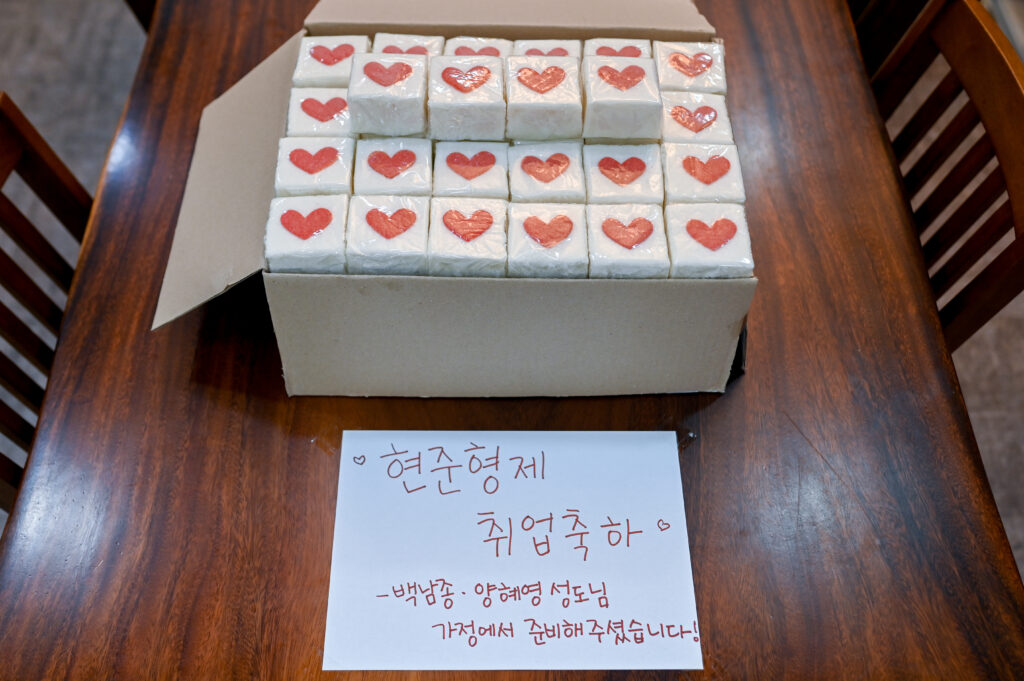 ♡ 현준형제
취업축하 ♡
-백남종·양혜영 성도님
가정에서 준비해주셨습니다!